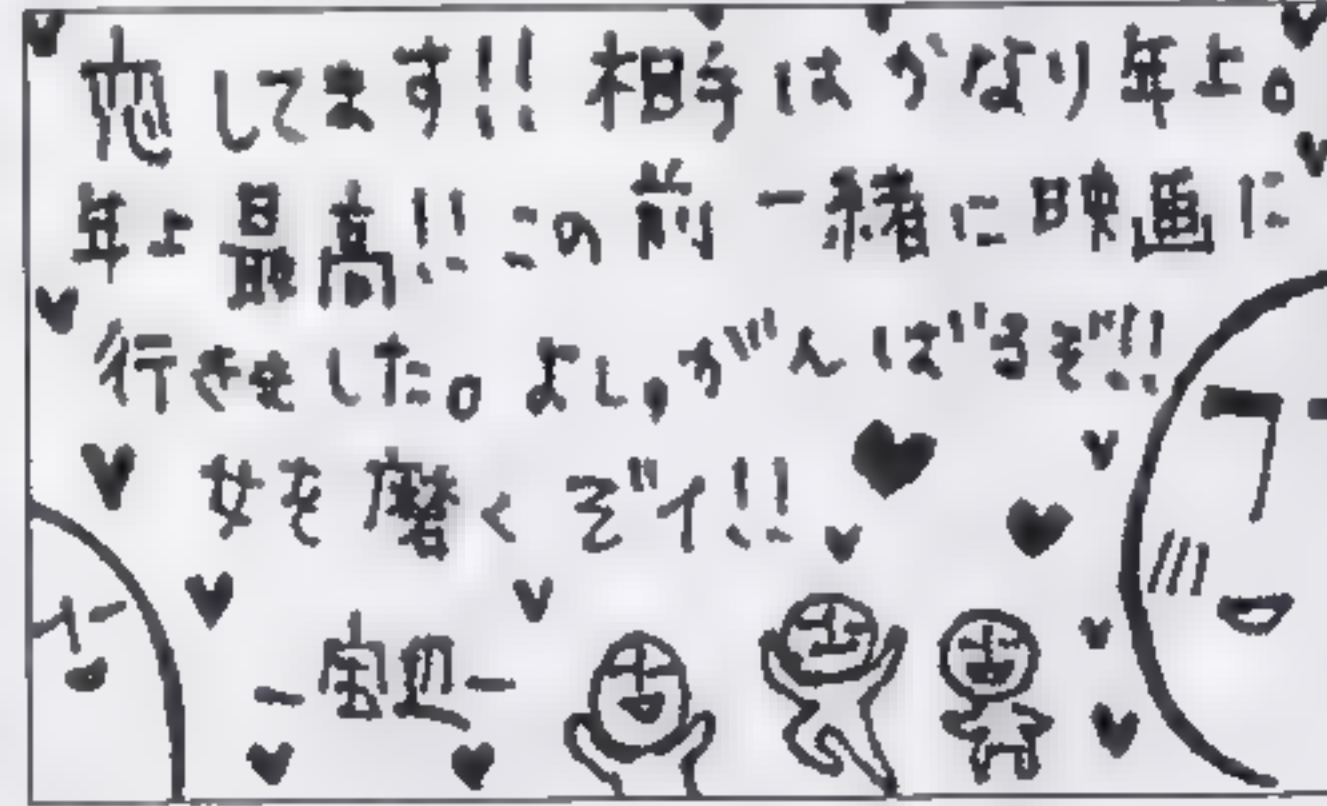 恋してます!! 相手はかなり年上。
年上最高!! この前一緒に映画に
行きました。よし,がんばるぞ!!
女を磨くぞイ!!